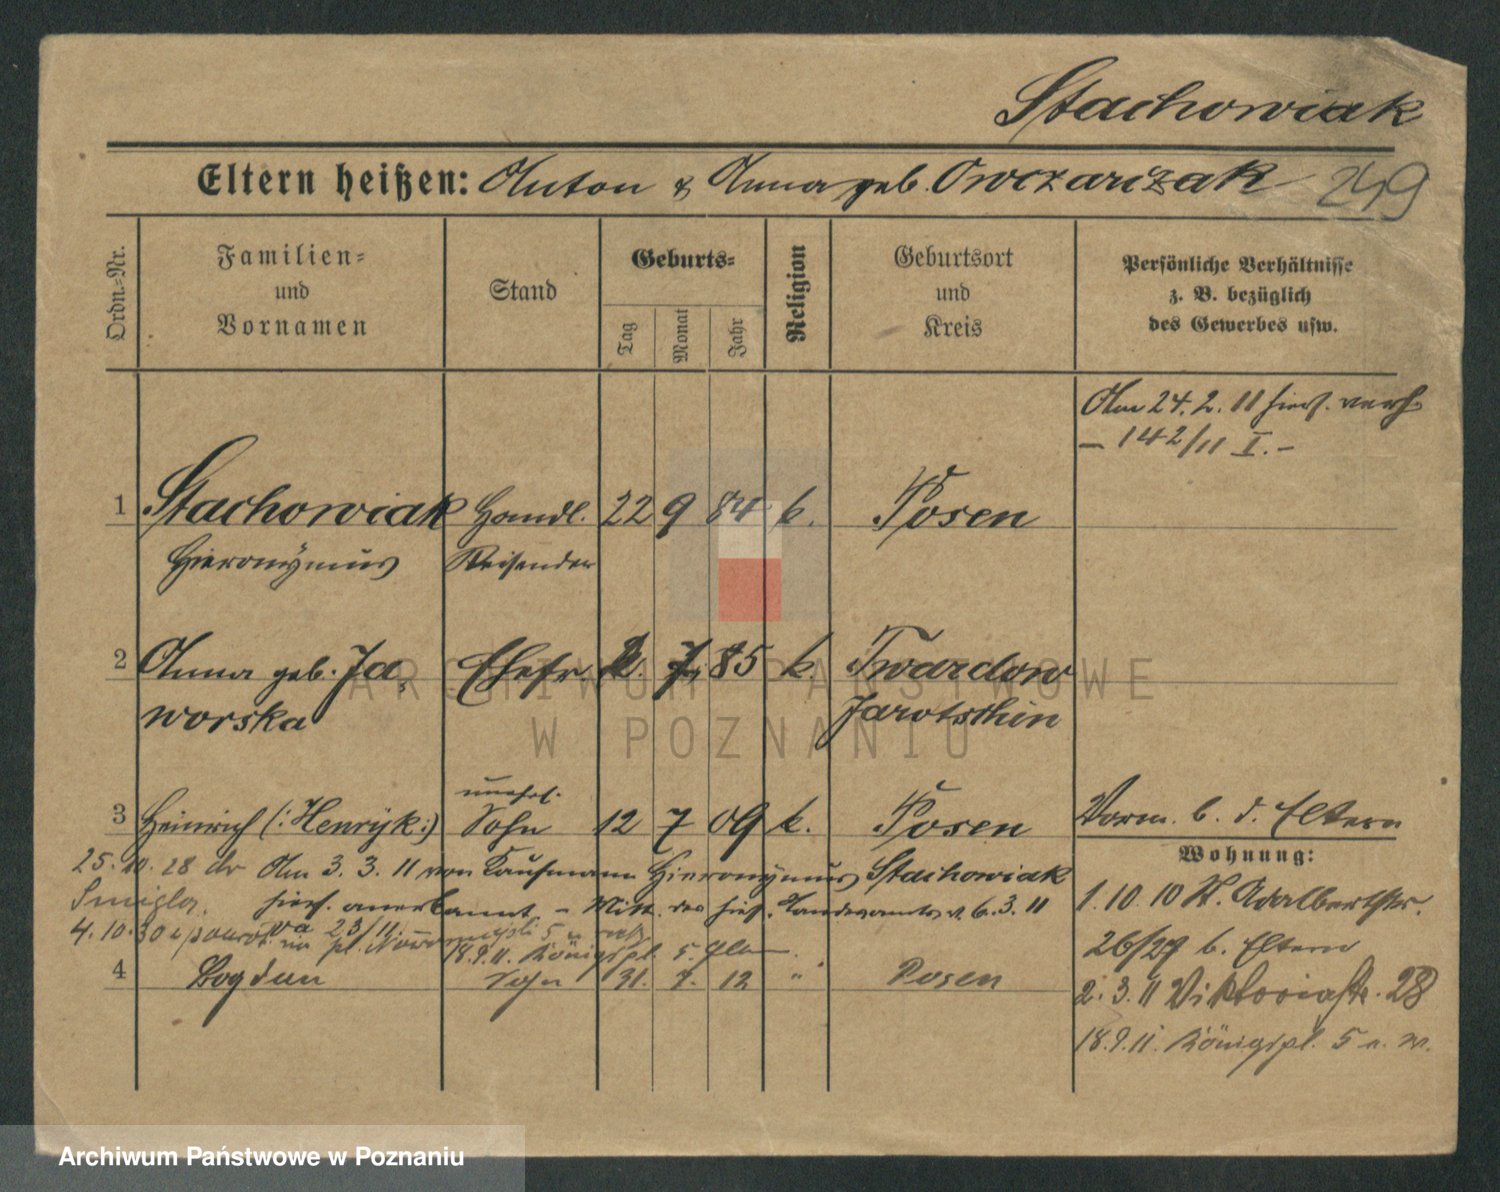 Stachowiak
Eltern heißen: Anton & Anna geb. Owczarzak 249
Ordn.-Nr.
Familien-
und
Vornamen
Stand
Geburts-
Tag
Monat
Jahr
Religion
Geburtsort
und
Kreis
Persönliche Verhältnisse
z. B. bezüglich
des Gewerbes usw.
Am 24. 2. 11 hies. verh.
– 142/11 I. –
1 Stachowiak Handl. 22 9 84 k. Posen
Hieronymus Reisender
2 Anna geb. Ja- Ehefr. 2. 7. 85 k. Twardow
worska Jarotschin
unehel.
3 Heinrich (: Henryk :) Sohn 12 7 09 k. Posen Vorm. b. d. Eltern
Wohnung:
25. 10. 28 do Am 3. 3. 11 von Kaufmann Hieronymus Stachowiak
Śmigla. hies. anerkannt – Mitt. des hies. Standesamtes v. 6. 3. 11
1. 10. 10 St. Adalbertstr.
26/27 b. Eltern
4. 10. 30 23/11 pl. 5
18. 9. 11. Königspl. 5.
4 Bogdan Sohn 31. 7. 12 " Posen
2. 3. 11 Viktoriastr. 28
18. 9. 11. Königspl. 5
ARCHIWUM PAŃSTWOWE
W POZNANIU
Archiwum Państwowe w Poznaniu